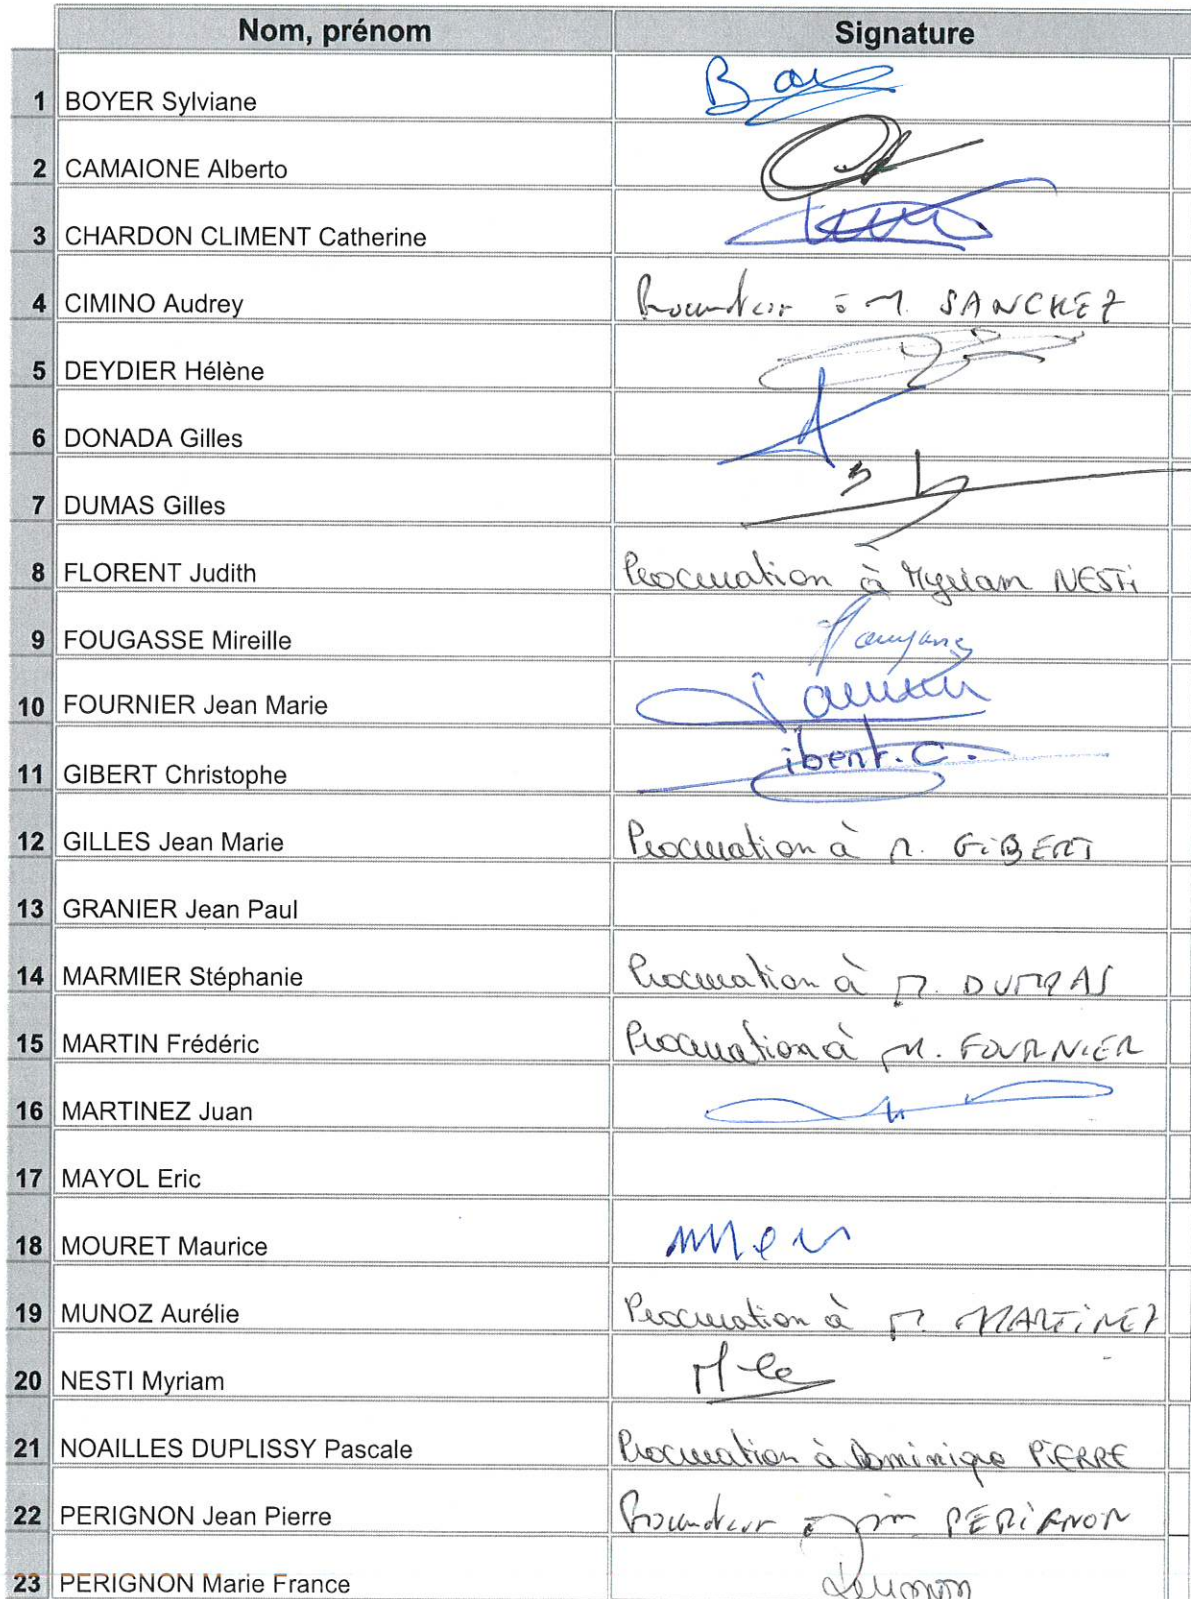 Nom, prénom Signature
1 BOYER Sylviane
2 CAMAIONE Alberto
3 CHARDON CLIMENT Catherine
4 CIMINO Audrey à M. SANCHEZ
5 DEYDIER Hélène
6 DONADA Gilles
7 DUMAS Gilles
8 FLORENT Judith Procuration à Myriam NESTi
9 FOUGASSE Mireille
10 FOURNIER Jean Marie
11 GIBERT Christophe ibert.C.
12 GILLES Jean Marie Procuration à M. GiBERT
13 GRANIER Jean Paul
14 MARMIER Stéphanie Procuration à M. DUMAS
15 MARTIN Frédéric Procuration à M. FOURNiER
16 MARTINEZ Juan
17 MAYOL Eric
18 MOURET Maurice
19 MUNOZ Aurélie Procuration à M. MARTiNEZ
20 NESTI Myriam
21 NOAILLES DUPLISSY Pascale Procuration à Dominique PiERRE
22 PERIGNON Jean Pierre à PERiGNON
23 PERIGNON Marie France